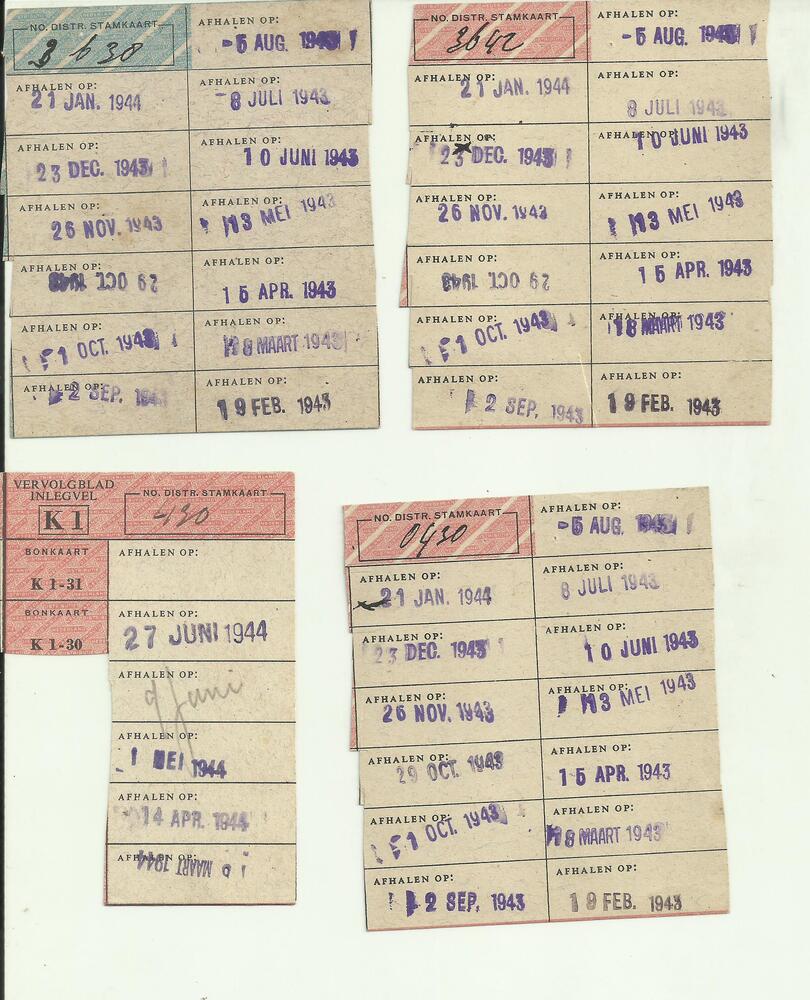 NO. DISTR. STAMKAART
3630
AFHALEN OP:
-5 AUG. 1943
AFHALEN OP:
21 JAN. 1944
AFHALEN OP:
-8 JULI 1943
AFHALEN OP:
23 DEC. 1943
AFHALEN OP:
10 JUNI 1943
AFHALEN OP:
26 NOV. 1943
AFHALEN OP:
13 MEI 1943
AFHALEN OP:
29 OCT. 1943
AFHALEN OP:
15 APR. 1943
AFHALEN OP:
1 OCT. 1943
AFHALEN OP:
18 MAART 1943
AFHALEN OP:
2 SEP. 1943
AFHALEN OP:
19 FEB. 1943
NO. DISTR. STAMKAART
3642
AFHALEN OP:
-5 AUG. 1943
AFHALEN OP:
21 JAN. 1944
AFHALEN OP:
8 JULI 1943
AFHALEN OP:
23 DEC. 1943
AFHALEN OP:
10 JUNI 1943
AFHALEN OP:
26 NOV. 1943
AFHALEN OP:
13 MEI 1943
AFHALEN OP:
29 OCT. 1943
AFHALEN OP:
15 APR. 1943
AFHALEN OP:
1 OCT. 1943
AFHALEN OP:
18 MAART 1943
AFHALEN OP:
2 SEP. 1943
AFHALEN OP:
19 FEB. 1943
VERVOLGBLAD
INLEGVEL
K 1
NO. DISTR. STAMKAART
430
BONKAART
K 1-31
BONKAART
K 1-30
AFHALEN OP:
AFHALEN OP:
27 JUNI 1944
AFHALEN OP:
9 Juni
AFHALEN OP:
1 MEI 1944
AFHALEN OP:
14 APR. 1944
AFHALEN OP:
MAART 1944
NO. DISTR. STAMKAART
0430
AFHALEN OP:
-5 AUG. 1943
AFHALEN OP:
21 JAN. 1944
AFHALEN OP:
8 JULI 1943
AFHALEN OP:
23 DEC. 1943
AFHALEN OP:
10 JUNI 1943
AFHALEN OP:
26 NOV. 1943
AFHALEN OP:
13 MEI 1943
AFHALEN OP:
29 OCT. 1943
AFHALEN OP:
15 APR. 1943
AFHALEN OP:
1 OCT. 1943
AFHALEN OP:
18 MAART 1943
AFHALEN OP:
2 SEP. 1943
AFHALEN OP:
19 FEB. 1943